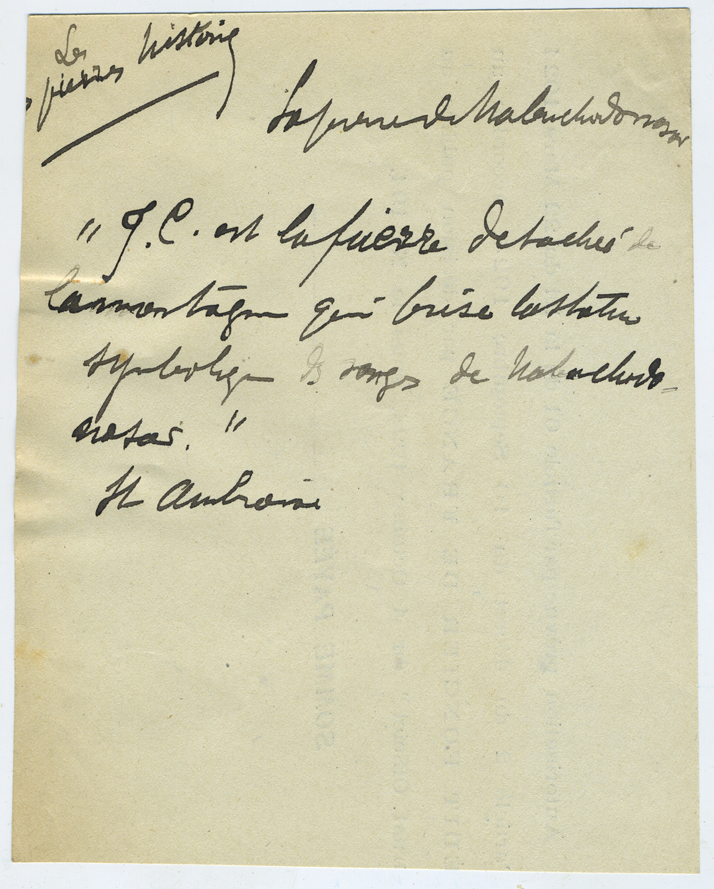 Les
pierres historiq
La pierre de Nabuchodonosor
" J. C. est la pierre detachée de
la montagne qui brise la statue
symbolique des songes de Nabuchodo-
nosor. "
St Ambroise
SOMME PAYÉE